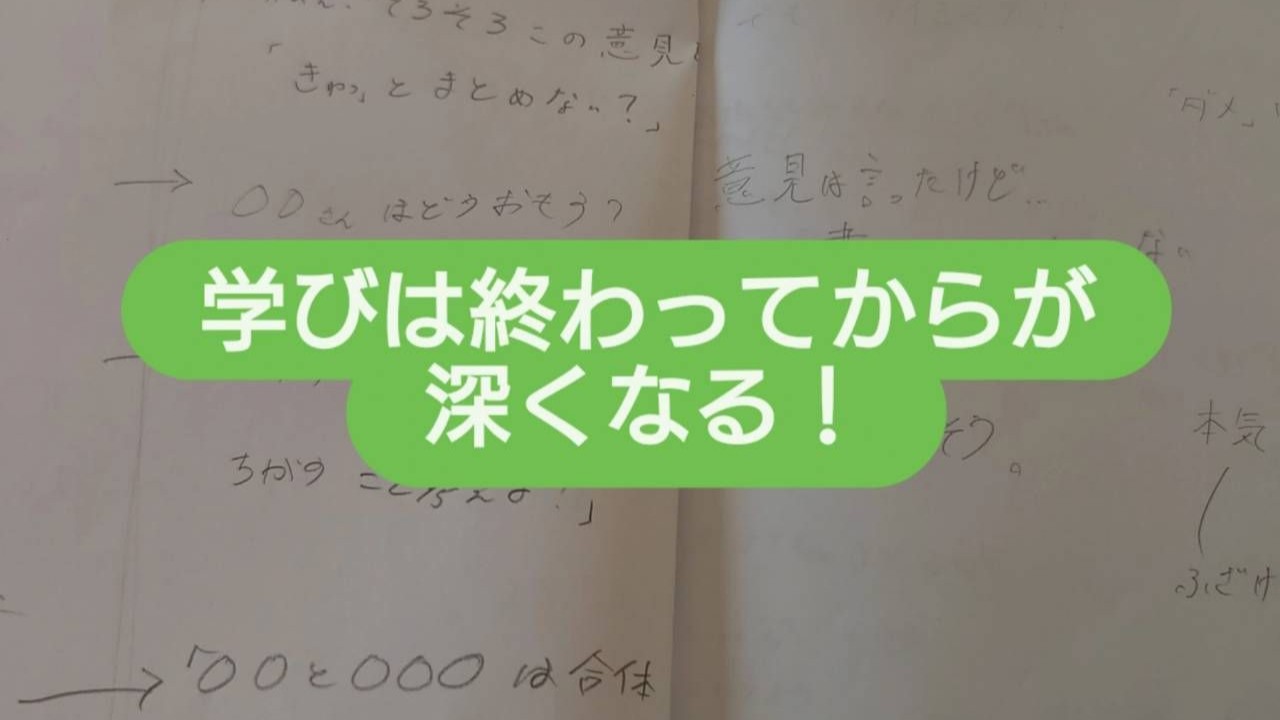 そろそろこの意見
「きゅっとまとめない?」
→ 〇〇さんはどうおもう?
学びは終わってからが
深くなる!
ちがう
→「〇〇と〇〇〇は合体
「ダメ」
意見は言ったけど…
ない
そう。
本気
ふざけ